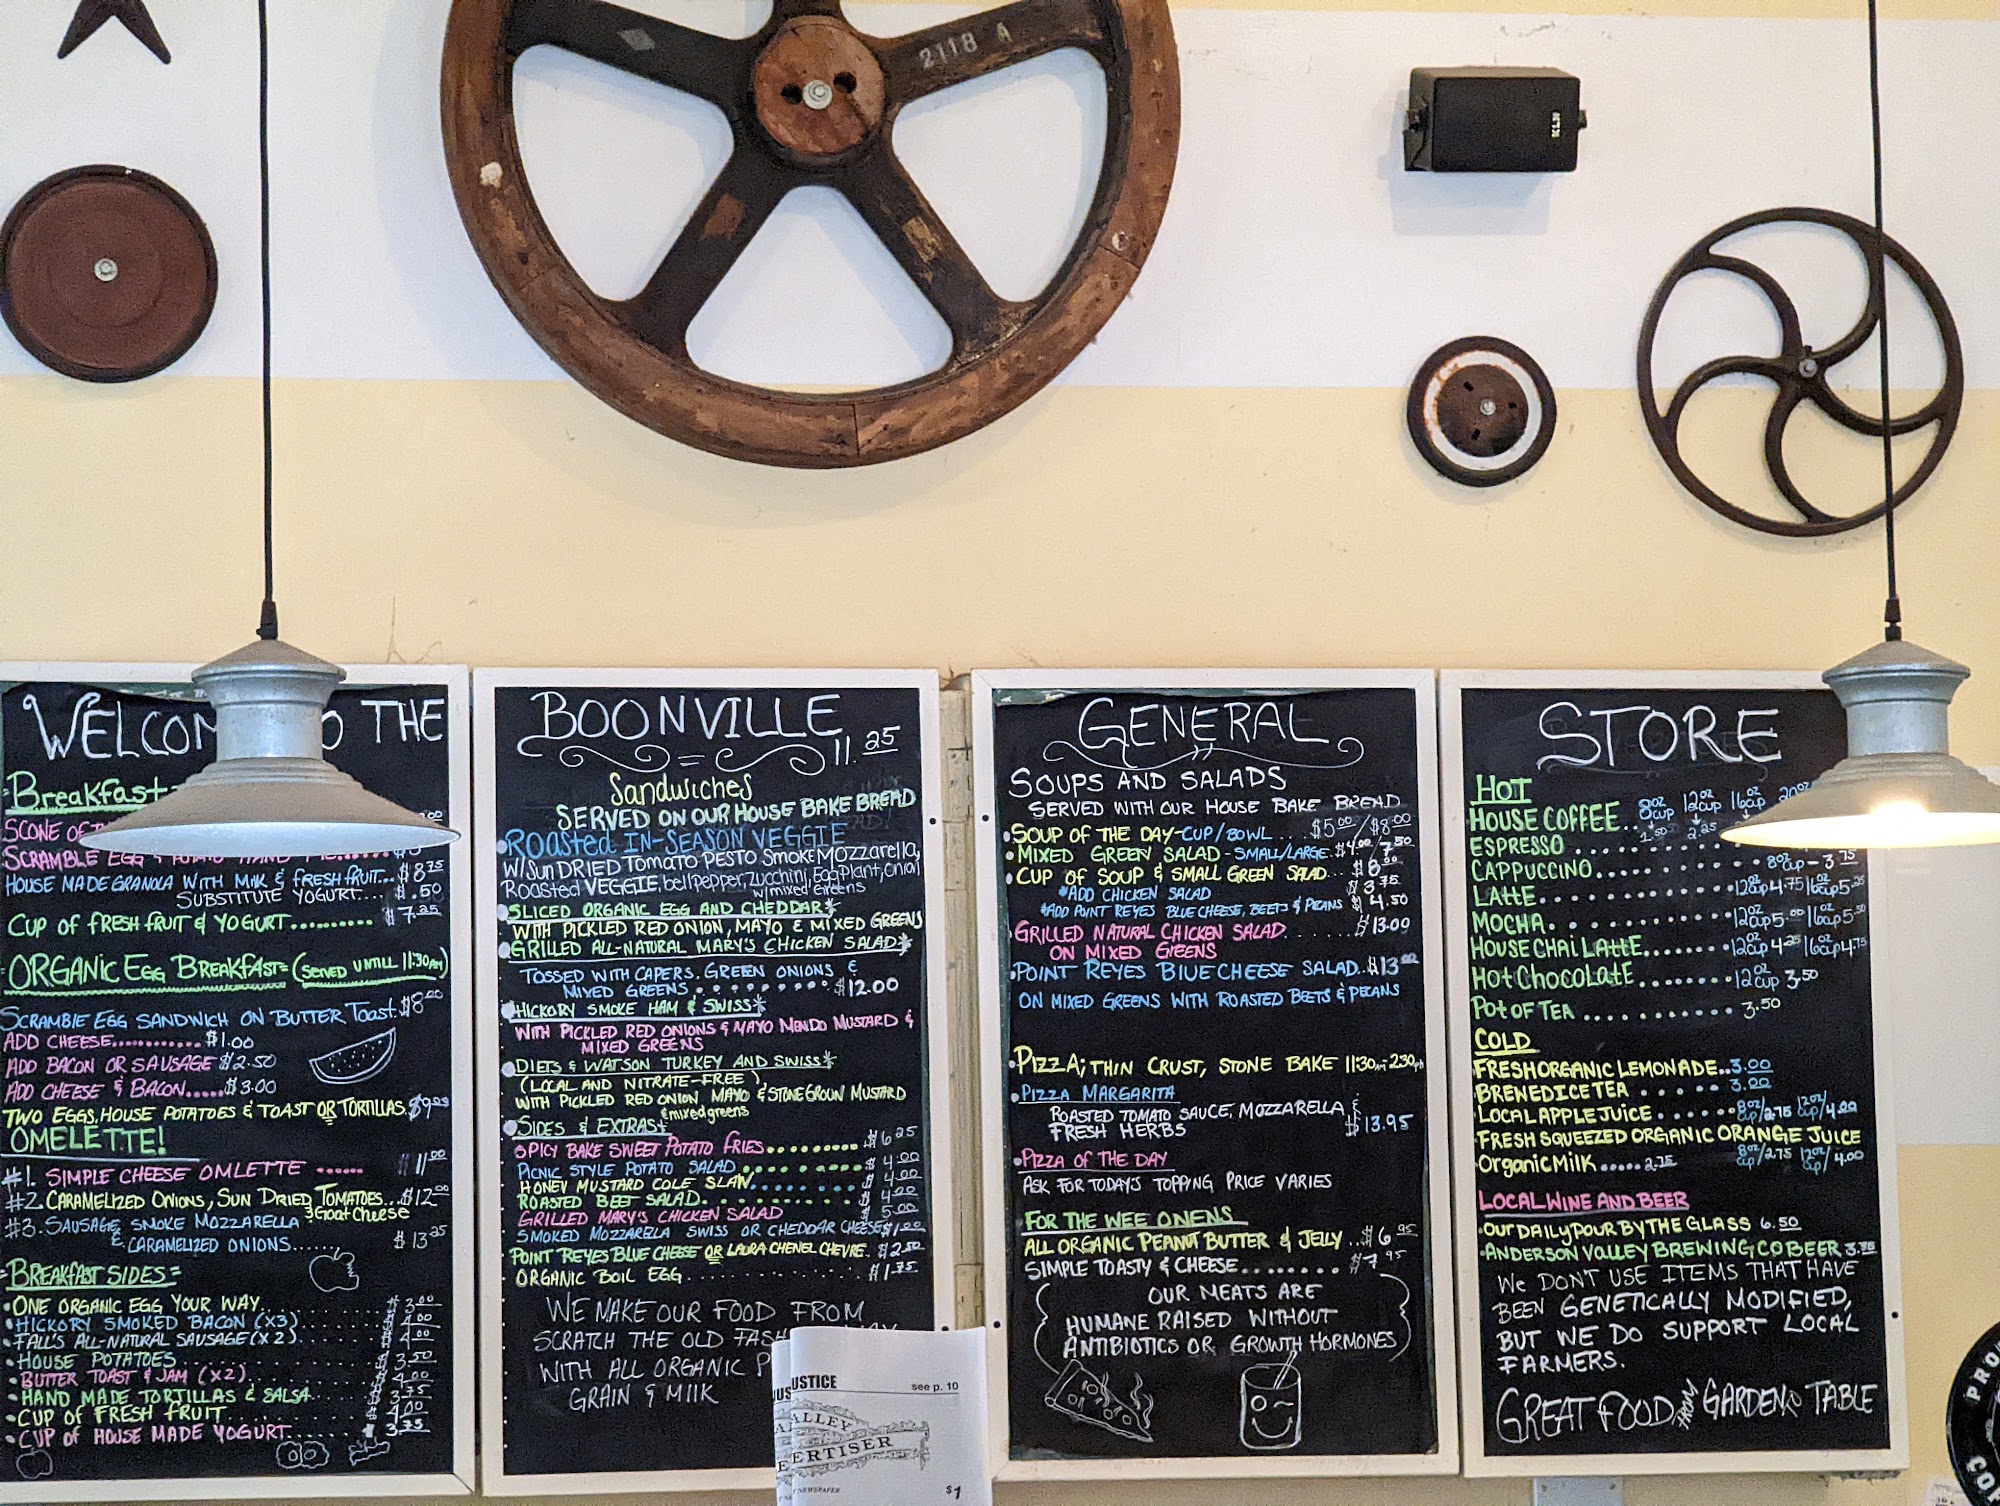 2118 A
KLH
WELCOM O THE
Breakfast
SCONE OF
SCRAMBLE EGG & POTATO HAND PIE
HOUSE MADE GRANOLA WITH MILK & FRESH FRUIT... $8.75
SUBSTITUTE YOGURT.... $.50
CUP OF FRESH FRUIT & YOGURT.......... $7.25
ORGANIC EGG BREAKFAST= (SERVED UNTILL 11:30AM)
SCRAMBLE EGG SANDWICH ON BUTTER TOAST. $8.00
ADD CHEESE............ $1.00
ADD BACON OR SAUSAGE $2.50
ADD CHEESE & BACON..... $3.00
TWO EGGS, HOUSE POTATOES & TOAST OR TORTILLAS. $9.00
OMELETTE!
#1. SIMPLE CHEESE OMLETTE ...... $11.00
#2. CARAMELIZED ONIONS, SUN DRIED TOMATOES...$12.00
& Goat Cheese
#3. SAUSAGE, SMOKE MOZZARELLA
& CARAMELIZED ONIONS...... $13.25
=BREAKFAST SIDES=
•ONE ORGANIC EGG YOUR WAY.......... $3.00
•HICKORY SMOKED BACON (x3).......... 4.00
•FALL'S ALL-NATURAL SAUSAGE (x2).......... 4.00
•HOUSE POTATOES.......... $3.50
•BUTTER TOAST & JAM (x2).......... 4.00
•HAND MADE TORTILLAS & SALSA.......... 3.75
•CUP OF FRESH FRUIT.......... 4.00
•CUP OF HOUSE MADE YOGURT.......... 3.75
BOONVILLE
11.25
Sandwiches
SERVED ON OUR HOUSE BAKE BREAD
•ROASTED IN-SEASON VEGGIE
W/SUN DRIED TOMATO PESTO SMOKE MOZZARELLA,
ROASTED VEGGIE, bellpepper, zucchini, Eggplant, Onion
w/mixed Greens
•SLICED ORGANIC EGG AND CHEDDAR*
WITH PICKLED RED ONION, MAYO & MIXED GREENS
•GRILLED ALL-NATURAL MARY'S CHICKEN SALAD*
TOSSED WITH CAPERS, GREEN ONIONS &
MIXED GREENS........ $12.00
•HICKORY SMOKE HAM & SWISS*
WITH PICKLED RED ONIONS & MAYO MENDO MUSTARD &
MIXED GREENS
•DIETS & WATSON TURKEY AND SWISS*
(LOCAL AND NITRATE-FREE),
WITH PICKLED RED ONION MAYO & STONE GROUN MUSTARD
& mixed greens
•SIDES & EXTRAS*
SPICY BAKE SWEET POTATO FRIES......... $6.25
PICNIC STYLE POTATO SALAD........ $4.00
HONEY MUSTARD COLE SLAW........ $4.00
ROASTED BEET SALAD........ $4.00
GRILLED MARY'S CHICKEN SALAD 5.00
SMOKED MOZZARELLA SWISS OR CHEDDAR CHEESE $1.00
POINT REYES BLUE CHEESE OR LAURA CHENEL CHEVRE. $2.50
ORGANIC BOIL EGG............ $1.75
WE MAKE OUR FOOD FROM
SCRATCH THE OLD FASH
WITH ALL ORGANIC P
GRAIN & MILK
GENERAL
SOUPS AND SALADS
SERVED WITH OUR HOUSE BAKE BREAD
•SOUP OF THE DAY-CUP/BOWL... $5.00/$8.00
•MIXED GREEN SALAD-SMALL/LARGE. $4.00/7.50
•CUP OF SOUP & SMALL GREEN SALAD... $8.00
*ADD CHICKEN SALAD $3.75
*ADD POINT REYES BLUE CHEESE, BEETS & PECANS $4.50
GRILLED NATURAL CHICKEN SALAD....... $13.00
ON MIXED GREENS
•POINT REYES BLUE CHEESE SALAD..$13.00
ON MIXED GREENS WITH ROASTED BEETS & PECANS
•PIZZA; THIN CRUST, STONE BAKE 11:30am-2:30pm
•PIZZA MARGARITA
ROASTED TOMATO SAUCE, MOZZARELLA &
FRESH HERBS $13.95
•PIZZA OF THE DAY
ASK FOR TODAYS TOPPING PRICE VARIES
FOR THE WEE ONENS
ALL ORGANIC PEANUT BUTTER & JELLY..$6.95
SIMPLE TOASTY & CHEESE........ $7.95
OUR MEATS ARE
HUMANE RAISED WITHOUT
ANTIBIOTICS OR GROWTH HORMONES
STORE
HOT
HOUSE COFFEE.. 8oz cup 12oz cup 16oz cup 20oz
1.50 2.25
ESPRESSO
CAPPUCCINO............ 8oz CUP-3.75
LATTE............ 12oz cup 4.75 16oz cup 5.25
MOCHA............ 12oz cup 5.00 16oz cup 5.50
HOUSE CHAI LATTE....... 12oz cup 4.25 16oz cup 4.75
HOT CHOCOLATE........ 12oz cup 3.50
POT OF TEA ............ 3.50
COLD
FRESH ORGANIC LEMONADE..3.00
BRENEDICE TEA .... 3.00
LOCAL APPLE JUICE ...... 8oz cup/2.75 12oz cup/4.00
FRESH SQUEEZED ORGANIC ORANGE JUICE
8oz cup/2.75 12oz cup/4.00
Organic Milk ..... 2.75
LOCAL WINE AND BEER
•OUR DAILY POUR BY THE GLASS 6.50
•ANDERSON VALLEY BREWING CO BEER 3.75
WE DON'T USE ITEMS THAT HAVE
BEEN GENETICALLY MODIFIED,
BUT WE DO SUPPORT LOCAL
FARMERS.
GREAT FOOD FROM GARDEN TO TABLE
USTICE
see p. 10
ALLEY
ERTISER
NEWSPAPER
$1
PRO
CO